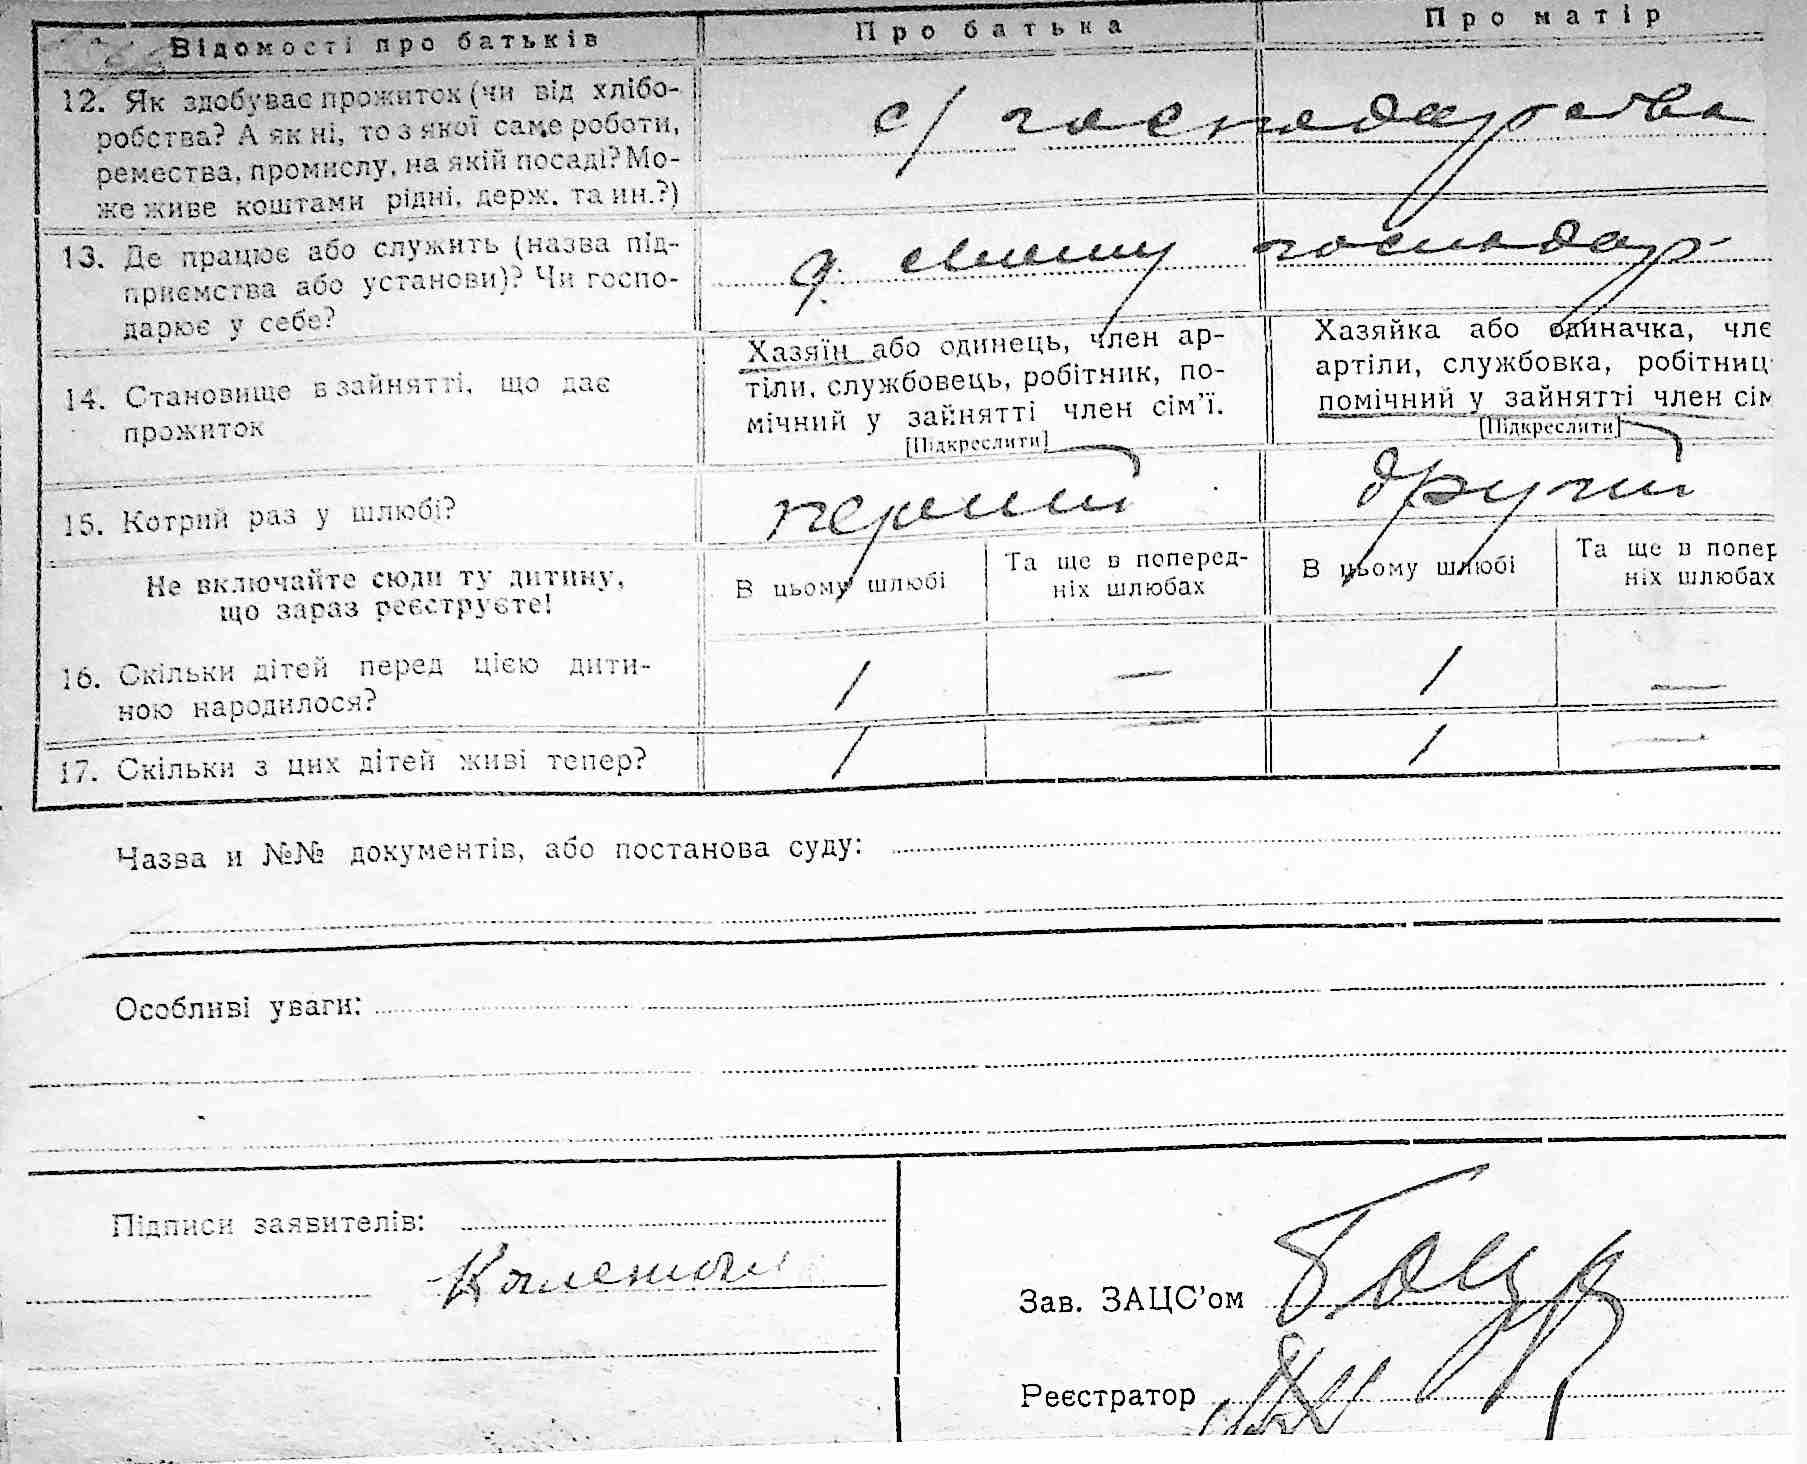 Відомості про батьків
Про батька
Про матір
12. Як здобуває прожиток (чи від хлібо-
робства? А як ні, то з якої саме роботи,
ремества, промислу, на якій посаді? Мо-
же живе коштами рідні, держ. та ин.?)
с/ господарства
13. Де працює або служить (назва під-
приємства або установи)? Чи госпо-
дарює у себе?
господар
14. Становище в зайнятті, що дає
прожиток
Хазяїн або одинець, член ар-
тіли, службовець, робітник, по-
мічний у зайнятті член сім'ї.
[Підкреслити]
Хазяйка або одиначка, чле
артіли, службовка, робітниц
помічний у зайнятті член сім
[Підкреслити]
15. Котрий раз у шлюбі?
перший
другий
Не включайте сюди ту дитину,
що зараз реєструєте!
В цьому шлюбі
Та ще в поперед-
ніх шлюбах
В цьому шлюбі
Та ще в попер
ніх шлюбах
16. Скільки дітей перед цією дити-
ною народилося?
1 — 1 —
17. Скільки з цих дітей живі тепер?
1 — 1 —
Назва и №№ документів, або постанова суду:
Особливі уваги:
Підписи заявителів:
Зав. ЗАЦС'ом
Реєстратор